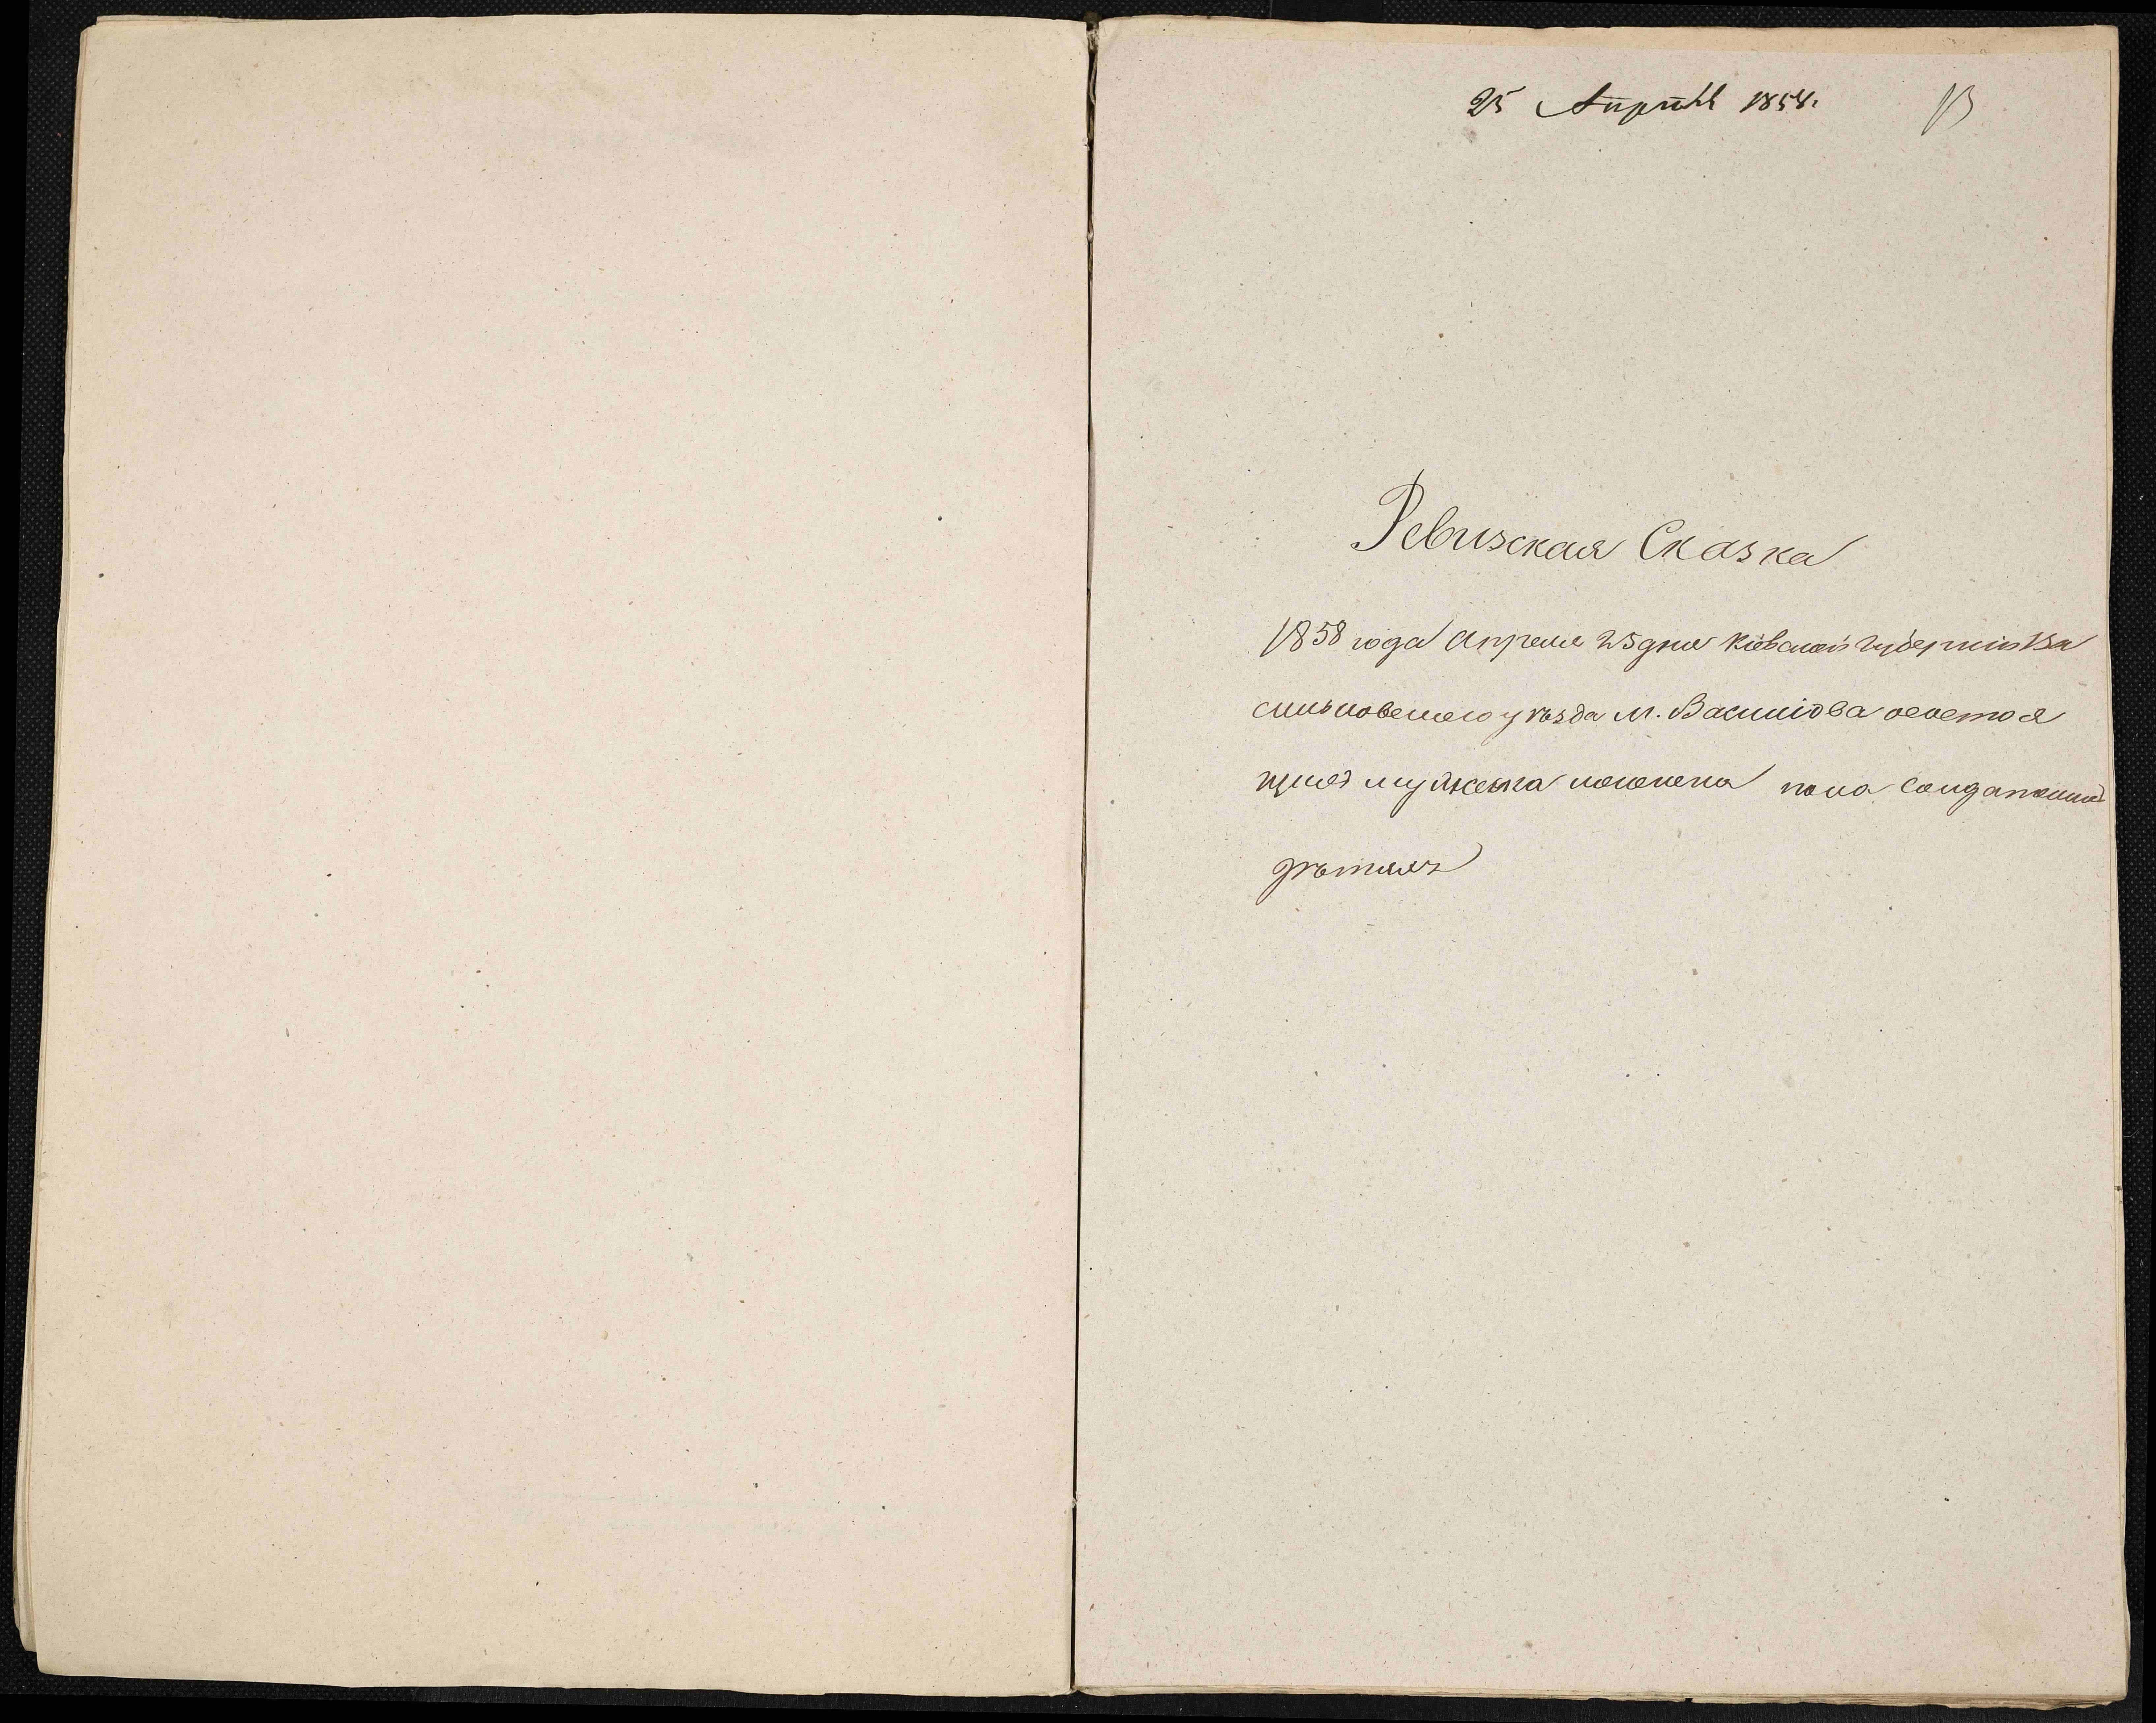 25 Апрѣля 1858. 13
Ревизская Сказка
1858 года Апреля 25 дня Кіевской Губерніи Ва
сильковскаго уѣзда М. Василкова осостоя
щихъ мужеска женска пола солдатскихъ
дѣтяхъ